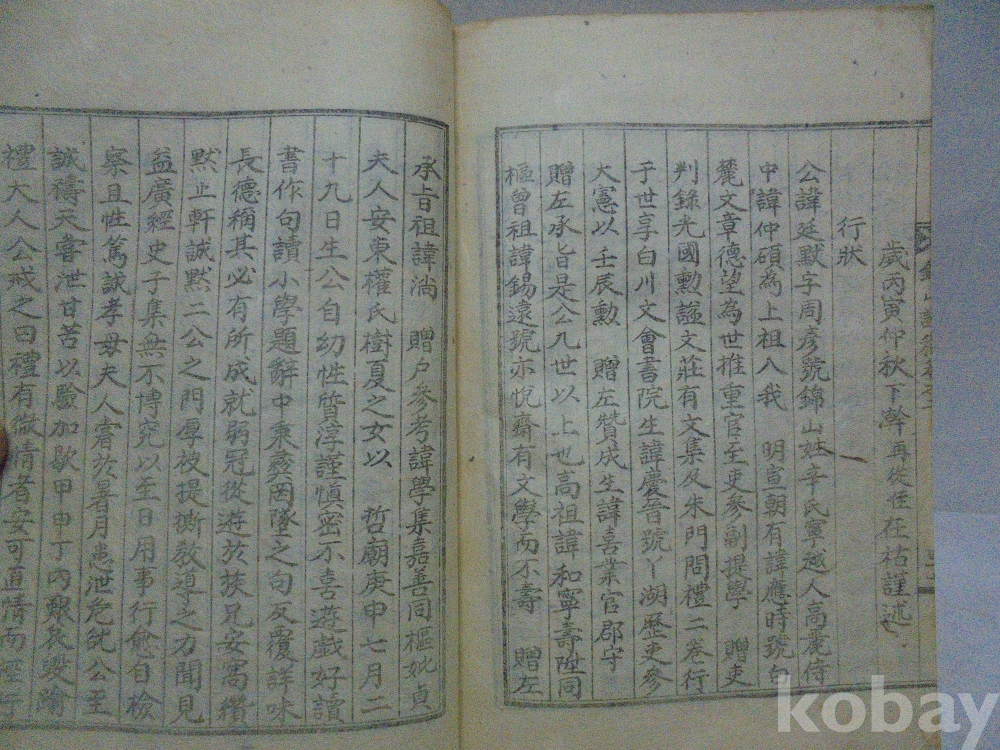 歲丙寅仲秋下澣再從侄在祜謹述
行狀
公諱廷默字周彥號錦山姓辛氏寧越人高麗侍
中諱仲碩為上祖入我　明宣朝有諱應時號白
麓文章德望為世推重官至吏參副提學　贈吏
判錄光國勳諡文莊有文集及朱門問禮二卷行
于世享白川文會書院生諱慶晉號丫湖歷吏參
大憲以壬辰勳　贈左贊成生諱喜業官郡守
贈左承旨是公九世以上也高祖諱和寧壽陞同
樞曾祖諱錫遠號亦悅齋有文學而不壽　贈左
承旨祖諱淌　贈戶參考諱學集嘉善同樞妣貞
夫人安東權氏樹夏之女以　哲廟庚申七月二
十九日生公自幼性質淳謹慎密不喜遊戲好讀
書作句讀小學題辭中秉彝罔墜之句反覆詳味
長德稱其必有所成就弱冠從遊於族兄安窩纘
默止軒誠默二公之門厚被提撕敎導之力聞見
益廣經史子集無不博究以至日用事行愈自檢
察且性篤誠孝母夫人嘗於暑月患泄危絀公至
誠禱天嘗泄甘苦以驗加歇甲申丁內艱哀毀踰
禮大人公戒之曰禮有微情者安可直情而徑行
kobay